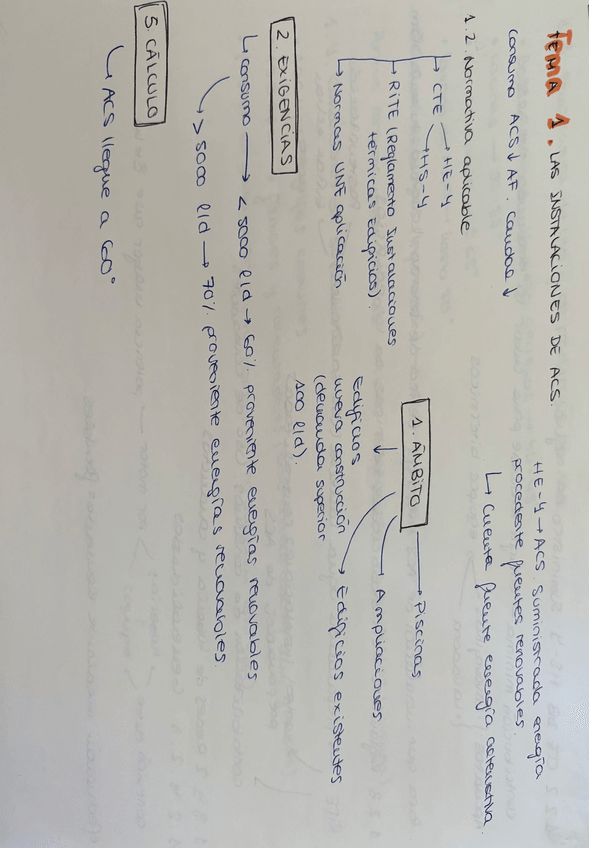 Tema 1. LAS INSTALACIONES DE ACS.
Consumo ACS ↓ AF. Caudal ↓
1.2. Normativa aplicable
CTE → HE-4
→ HS-4
RITE (Reglamento Instalaciones
térmicas Edificios).
Normas UNE aplicación
HE-4 → ACS. Suministrada energía
procedente fuentes renovables
↳ Cuente fuente energía alternativa.
1. ÁMBITO
→ Piscinas
→ Ampliaciones
→ Edificios existentes
↓
Edificios
nueva construcción
(demanda superior
100 l/d).
2. EXIGENCIAS
↳ consumo → < 5000 l/d → 60% proveniente energías renovables
↳ > 5000 l/d → 70% proveniente energías renovables.
5. CÁLCULO
↳ ACS llegue a 60°